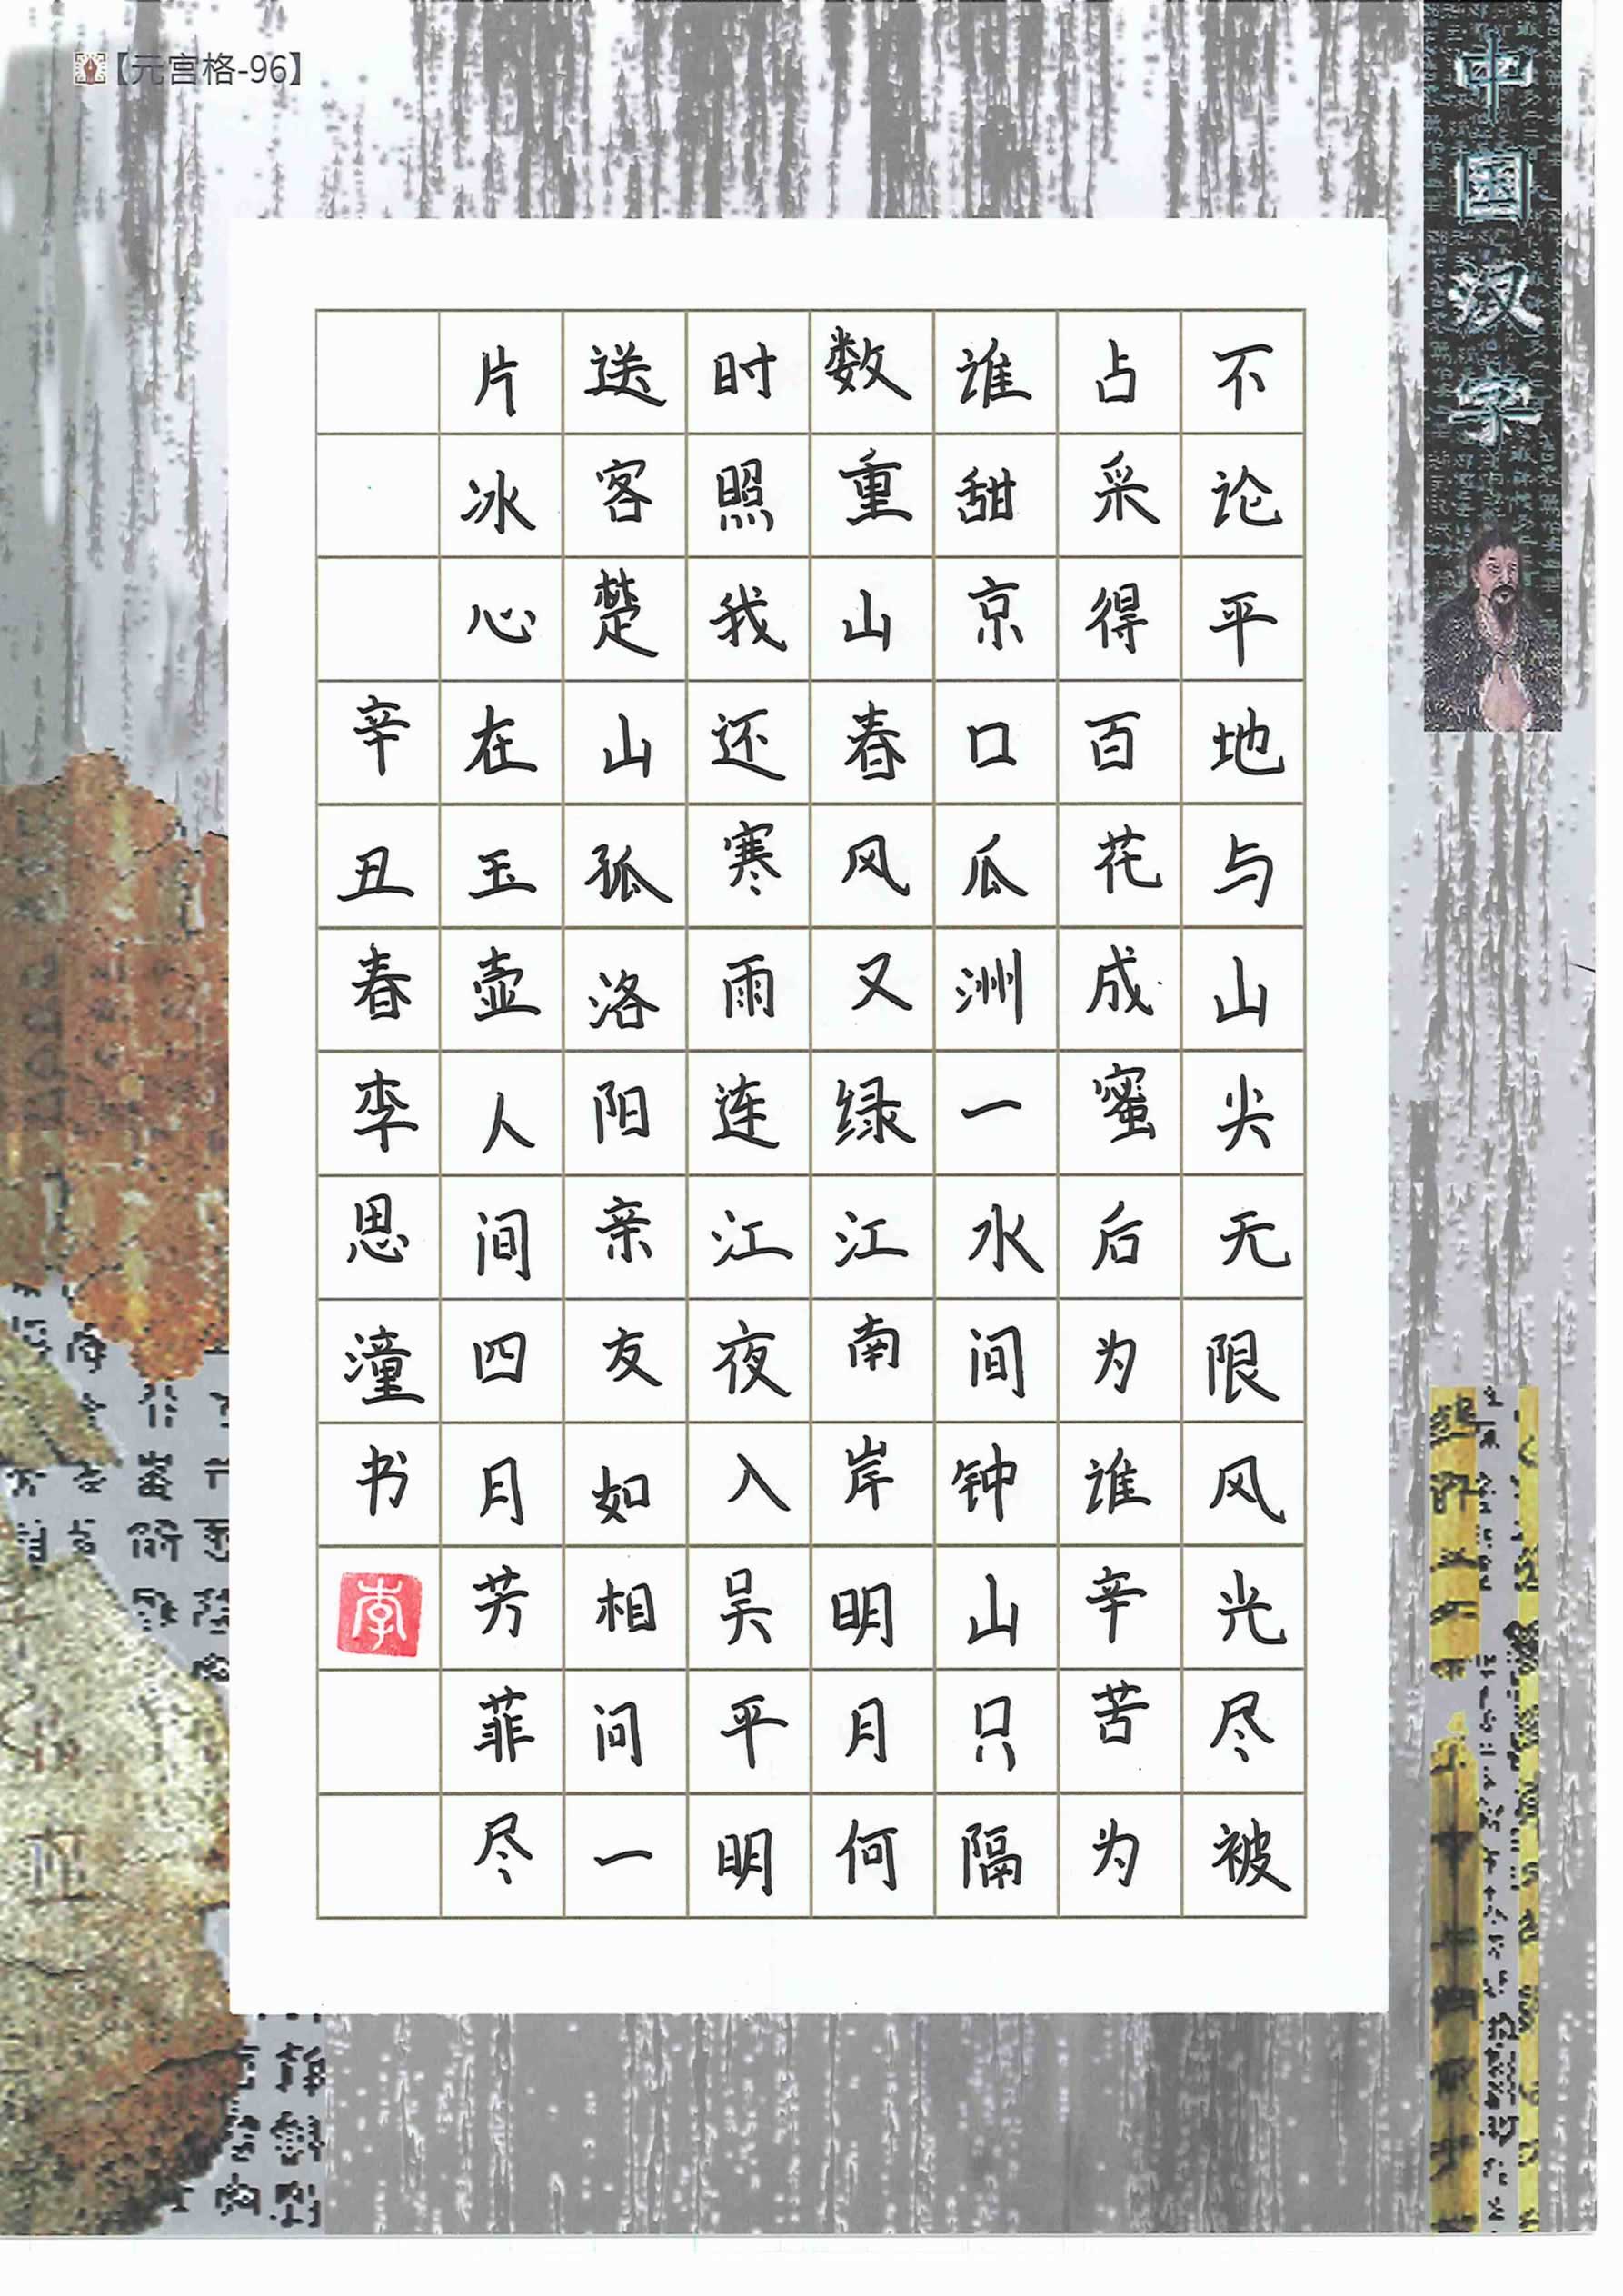 【元宫格-96】
中国汉字
不论平地与山尖无限风光尽被
占采得百花成蜜后为谁辛苦为
谁甜京口瓜洲一水间钟山只隔
数重山春风又绿江南岸明月何
时照我还寒雨连江夜入吴平明
送客楚山孤洛阳亲友如相问一
片冰心在玉壶人间四月芳菲尽
辛丑春李思潼书
李